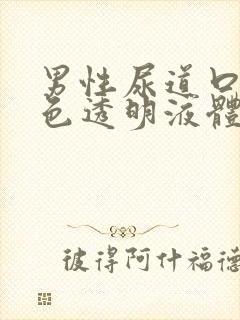 男性尿道口
色透明液體
彼得阿什福德